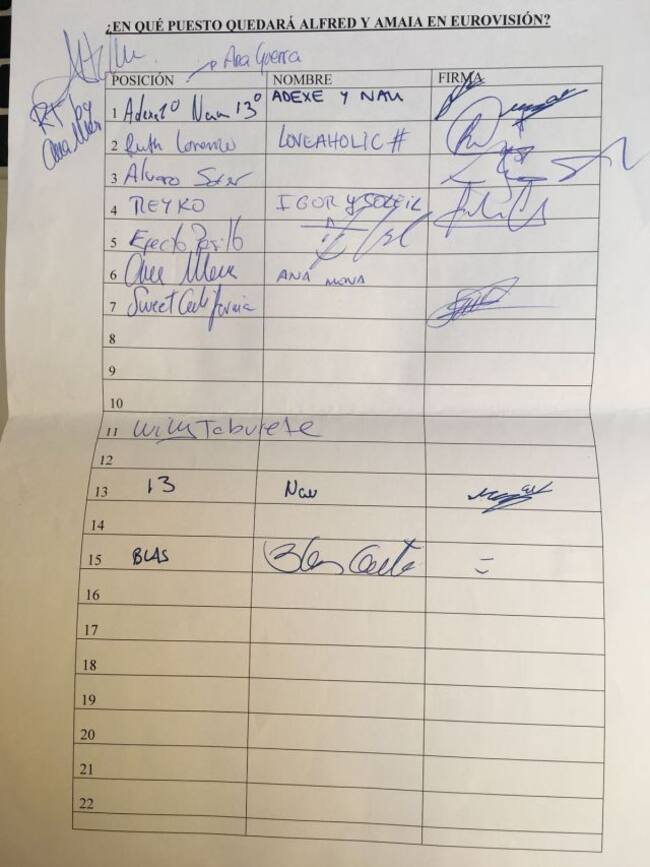 ¿EN QUÉ PUESTO QUEDARÁ ALFRED Y AMAIA EN EUROVISIÓN?
Ana Guerra
RT by
Ana Mena
POSICIÓN NOMBRE FIRMA
1 Adexe 1º Nau 13º ADEXE Y NAU
2 Ruth Lorenzo LOVEAHOLIC #
3 Alvaro Soler
4 REYKO IGOR y SOLEIL
5 Efecto Pasillo
6 Ana Mena ANA MENA
7 Sweet California
8
9
10
11 Willy Taburete
12
13 13 Nau
14
15 BLAS Blas Cantó =
16
17
18
19
20
21
22